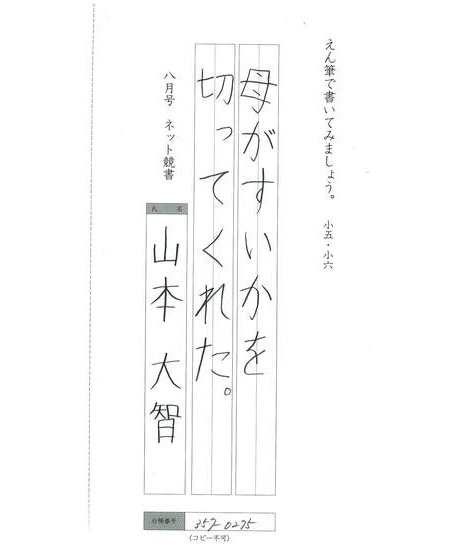 えん筆で書いてみましょう。 小五・小六
母がすいかを
切ってくれた。
八月号 ネット競書
氏名
山本 大智
会格番号 359-0275
(コピー不可)